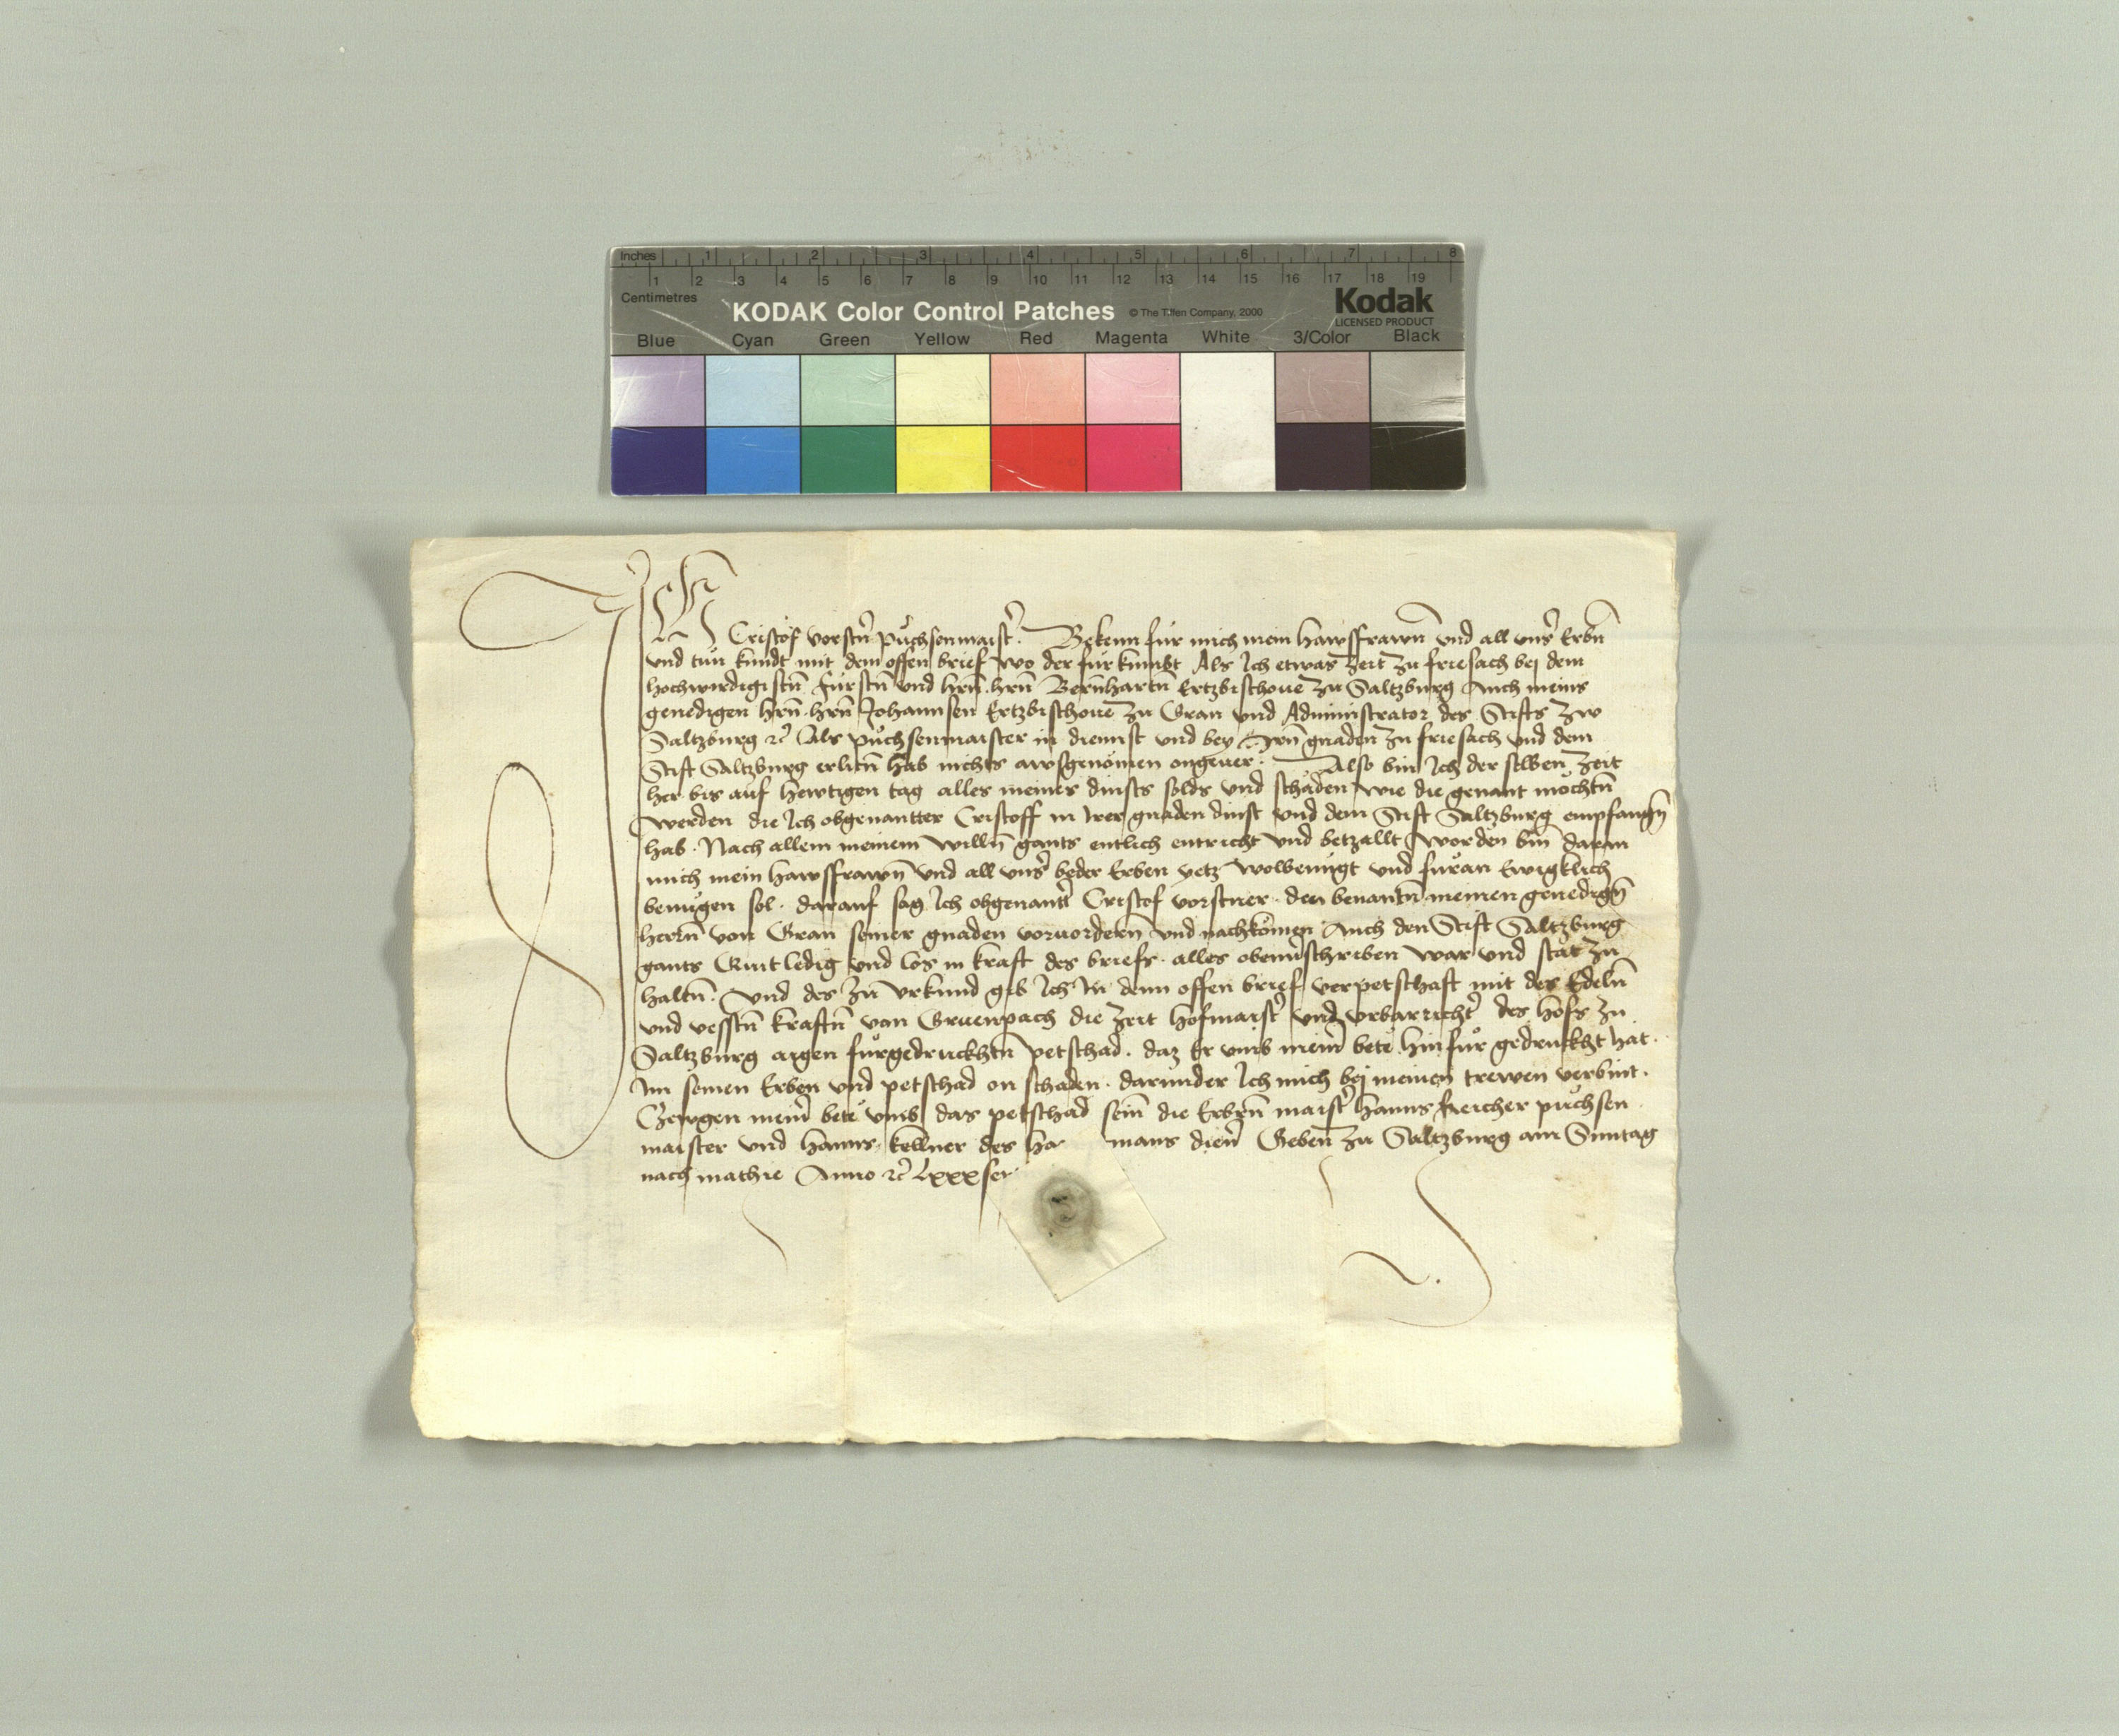 Inches 1 2 3 4 5 6 7 8
1 2 3 4 5 6 7 8 9 10 11 12 13 14 15 16 17 18 19
Centimetres
KODAK Color Control Patches © The Tiffen Company, 2000 Kodak
LICENSED PRODUCT
Blue Cyan Green Yellow Red Magenta White 3/Color Black
Ich
Cristof vorstn̄ puchsenmaist̉. Bekenn fur mich mein hawsfrawn̄ vnd all vns̉ Erbn̄
vnd tun kundt mit dem offen brief wo der furkumbt Als Ich etwas zeit zu friesach bei dem
hochwirdigistn̄ furstn̄ vnd hrn̄ hrn̄ Bernhartn̄ Ertzbischoue zu Saltzburg Auch meins
genedigen hrn̄ hrn̄ Johannsen Ertzbischoue zu Gran vnd Administrator des Stifts zw
Saltzburg ꝛc̉ Als puchsenmaister in diennst vnd bey Irn̄ gnaden zu friesach vnd dem
Stift Saltzburg erlitn̄ hab nichts awsgenomen ongeuer. Also bin Ich der selben zeit
her bis auf hewtigen tag alles meines dinsts solds vnd schaden wie die genant mochtn̄
werden die Ich obgenantter Cristoff in Irer gnaden dinst vnd dem Stift Saltzburg empfangn̄
hab. Nach allem meinem willn̄ gants entlich entricht vnd betzallt worden bin daran
mich mein hawsfrawn̄ vnd all vns̉ beder Erben yetz wolbenugt vnd furan Ewigklich
benugen sol. darauf sag Ich obgenant̉ Cristof vorstner den benantn̄ meinen genedign̄
herrn̄ von Gran seiner gnaden voruordern̄ vnd nachkomen Auch den Stift Saltzburg
gants Quit ledig vnd los in kraft des briefs. alles obenuerschriben war vnd stat zu
haltn̄. Vnd des zu vrkund gib Ich In denn offen brief verpetschaft mit des Edeln̄
vnd vesstn̄ kraftn̄ von Gruenpach die zeit hofmaist̉ vnd vrbarricht̉ des hofs zu
Saltzburg aigen furgedruckhtn̄ petschad. daz Er vmb mein̉ bete hinfur gedruckht hat.
Im seinen Erben vnd petschad on schaden. darunder Ich mich bei meinen trewen verbint.
Zewgen mein̉ bete vmb das petschad sein die Erbern̄ maist̉ Hanns puchsen
maister vnd hanns kellner des mans dien̉ Geben zu Saltzburg am Suntag
nach mathie Anno ꝛc̉ Lxxx